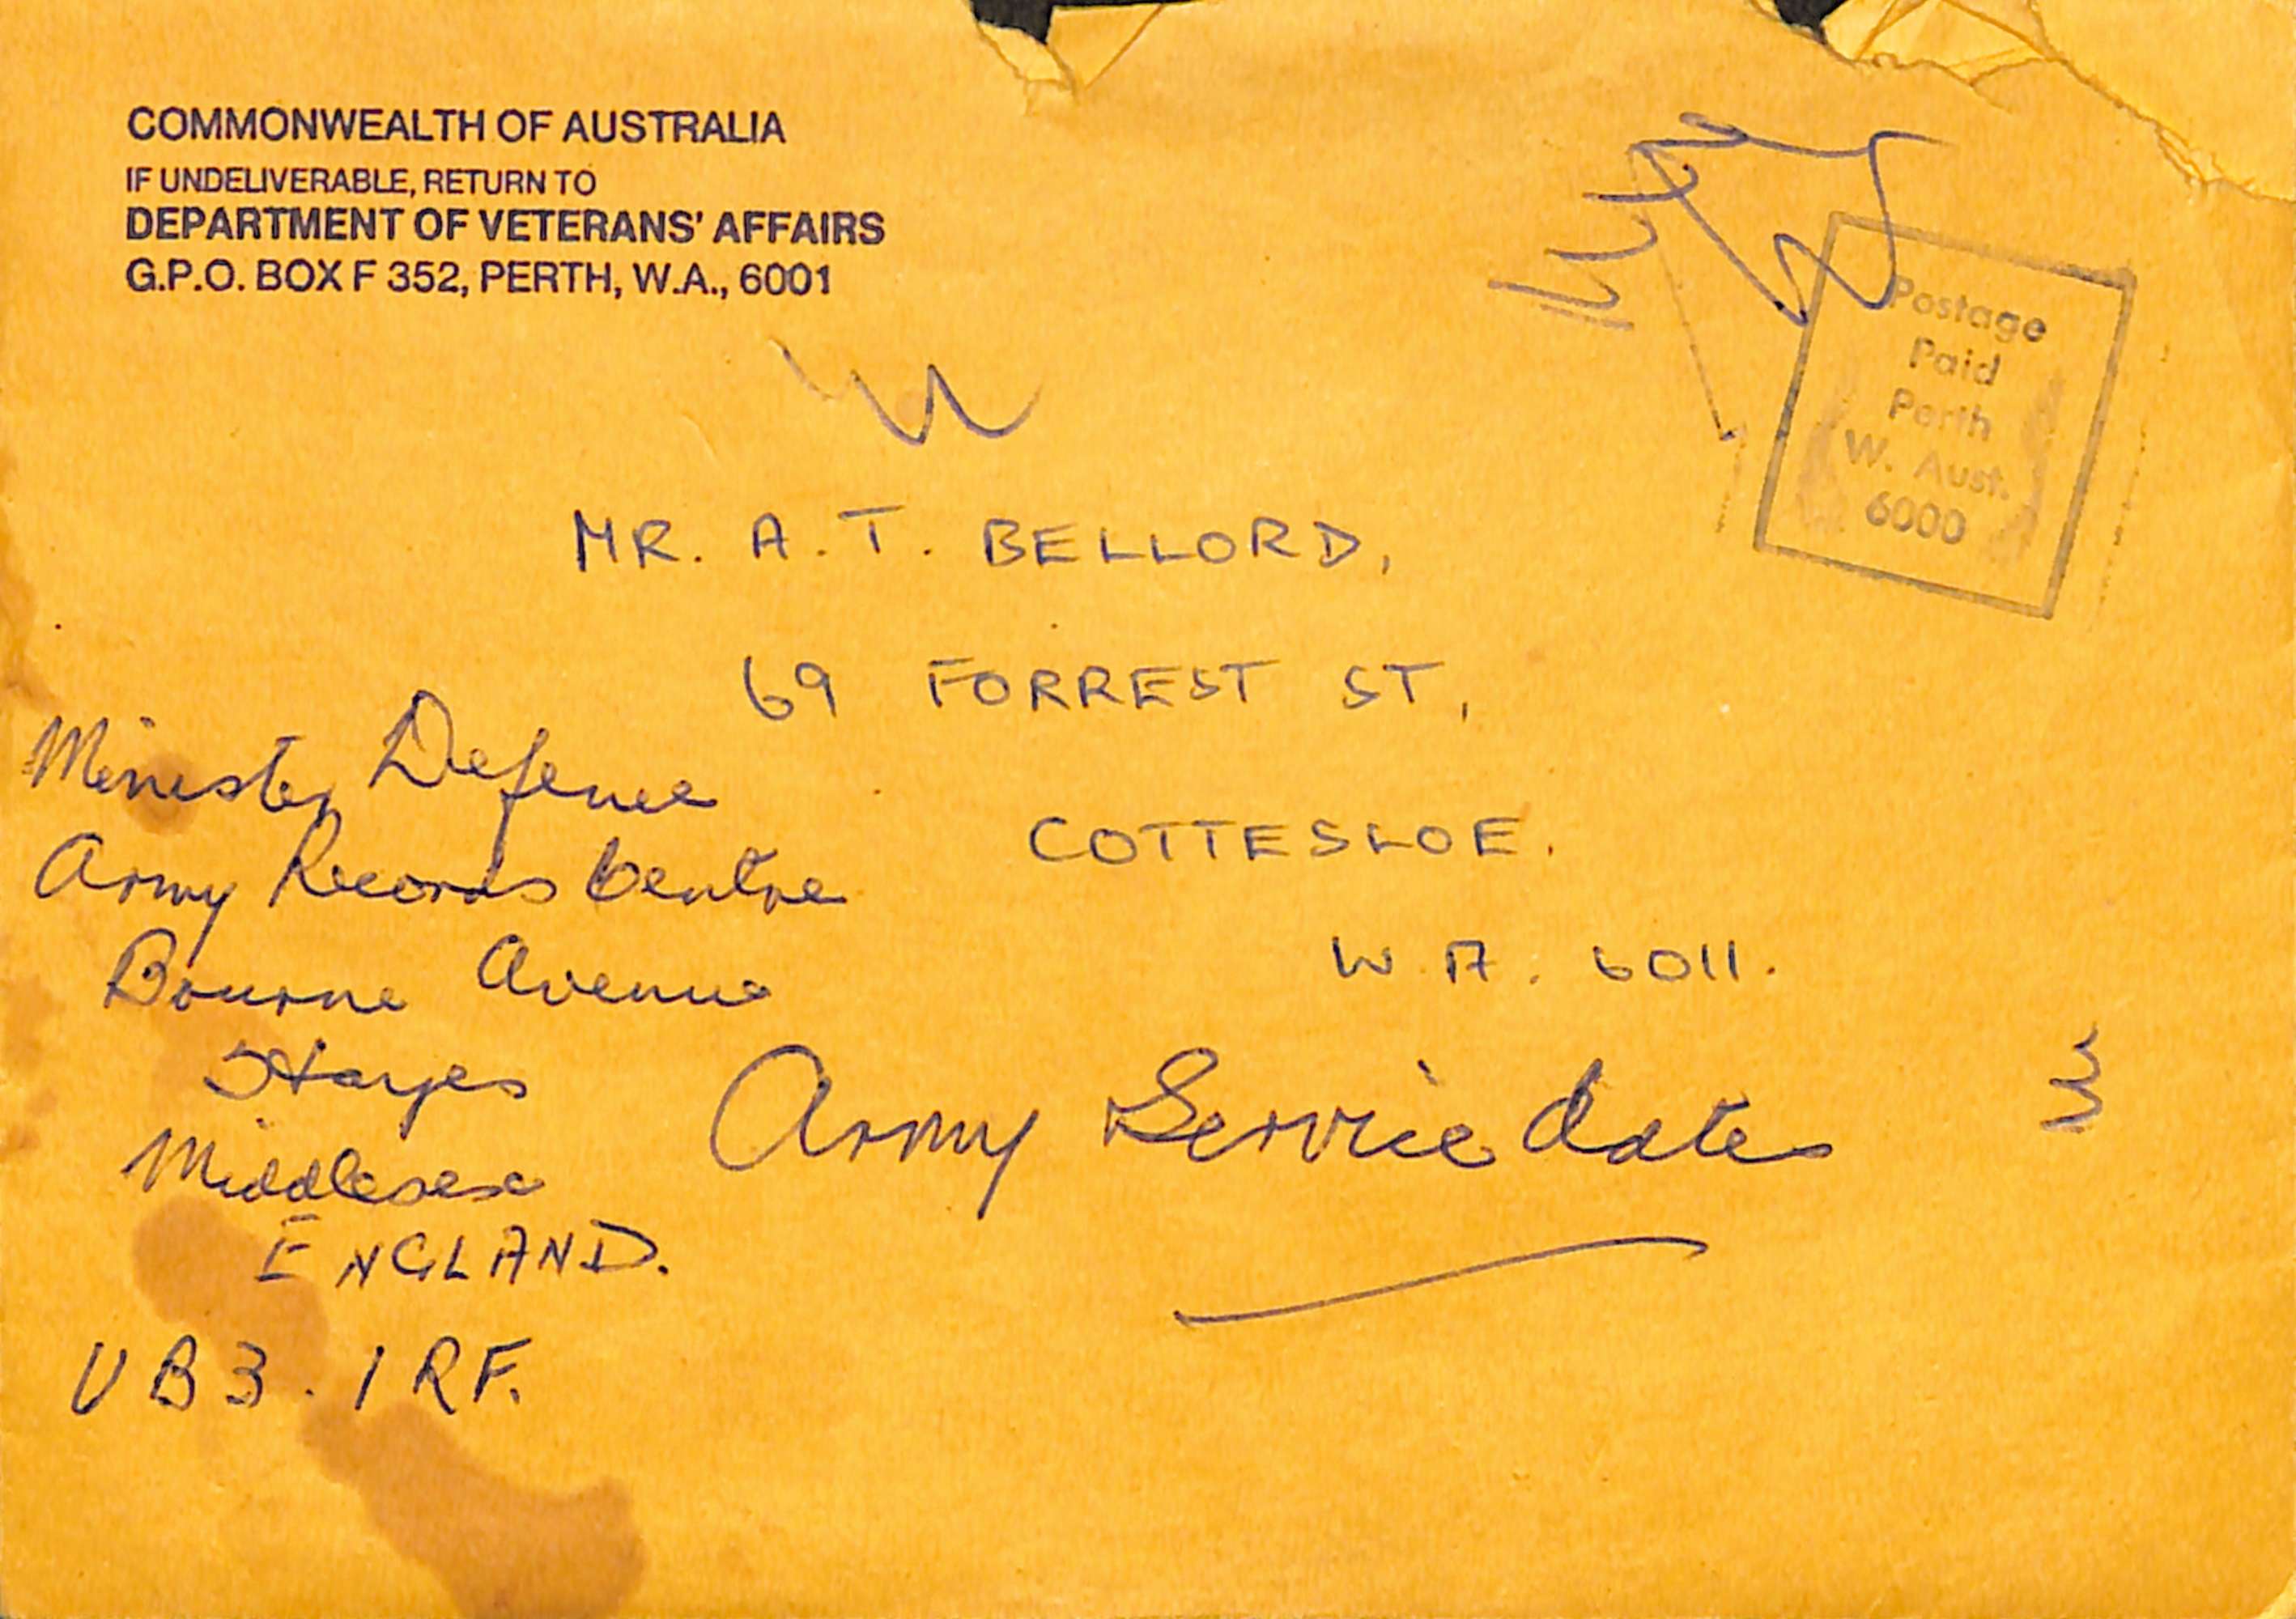 COMMONWEALTH OF AUSTRALIA
IF UNDELIVERABLE, RETURN TO
DEPARTMENT OF VETERANS' AFFAIRS
G.P.O. BOX F 352, PERTH, W.A., 6001
Postage
Paid
Perth
W. Aust.
6000
MR. A.T. BELLORD,
69 FORREST ST,
COTTESLOE.
W.A. 6011.
Minister Defence
Army Records Centre
Bourne Avenue
Hayes
Middlesex
ENGLAND.
UB3.1RF.
Army Service dates